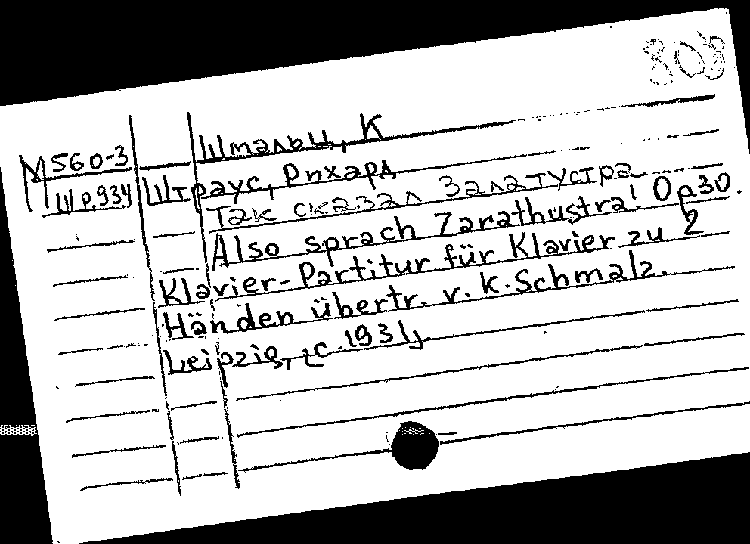 808
Шмальц, К
М560-3
Ш р.934 Штраус, Рихард
Так сказал Залатустра
Also sprach Zarathustra! Op30.
Klavier-Partitur für Klavier zu 2
Händen übertr. v. K. Schmalz.
Leipzig, [c.1931]